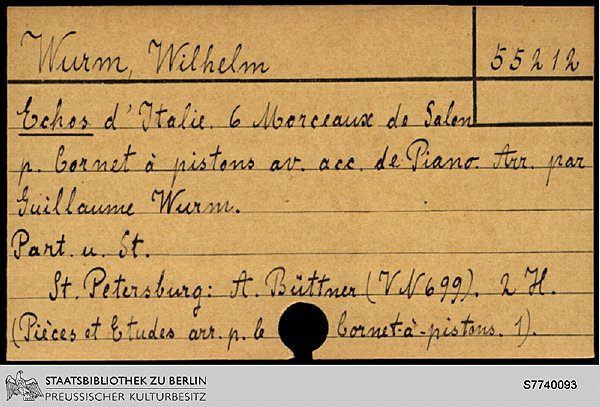 Wurm, Wilhelm
55212
Echos d'Italie. 6 Morceaux de Salon
p. Cornet à pistons av. acc. de Piano. Arr. par
Guillaume Wurm.
Part. u. St.
St. Petersburg: A. Büttner (VN 699). 2 H.
(Pièces et Etudes arr. p. le Cornet-à-pistons. 1).
STAATSBIBLIOTHEK ZU BERLIN
PREUSSISCHER KULTURBESITZ
S7740093